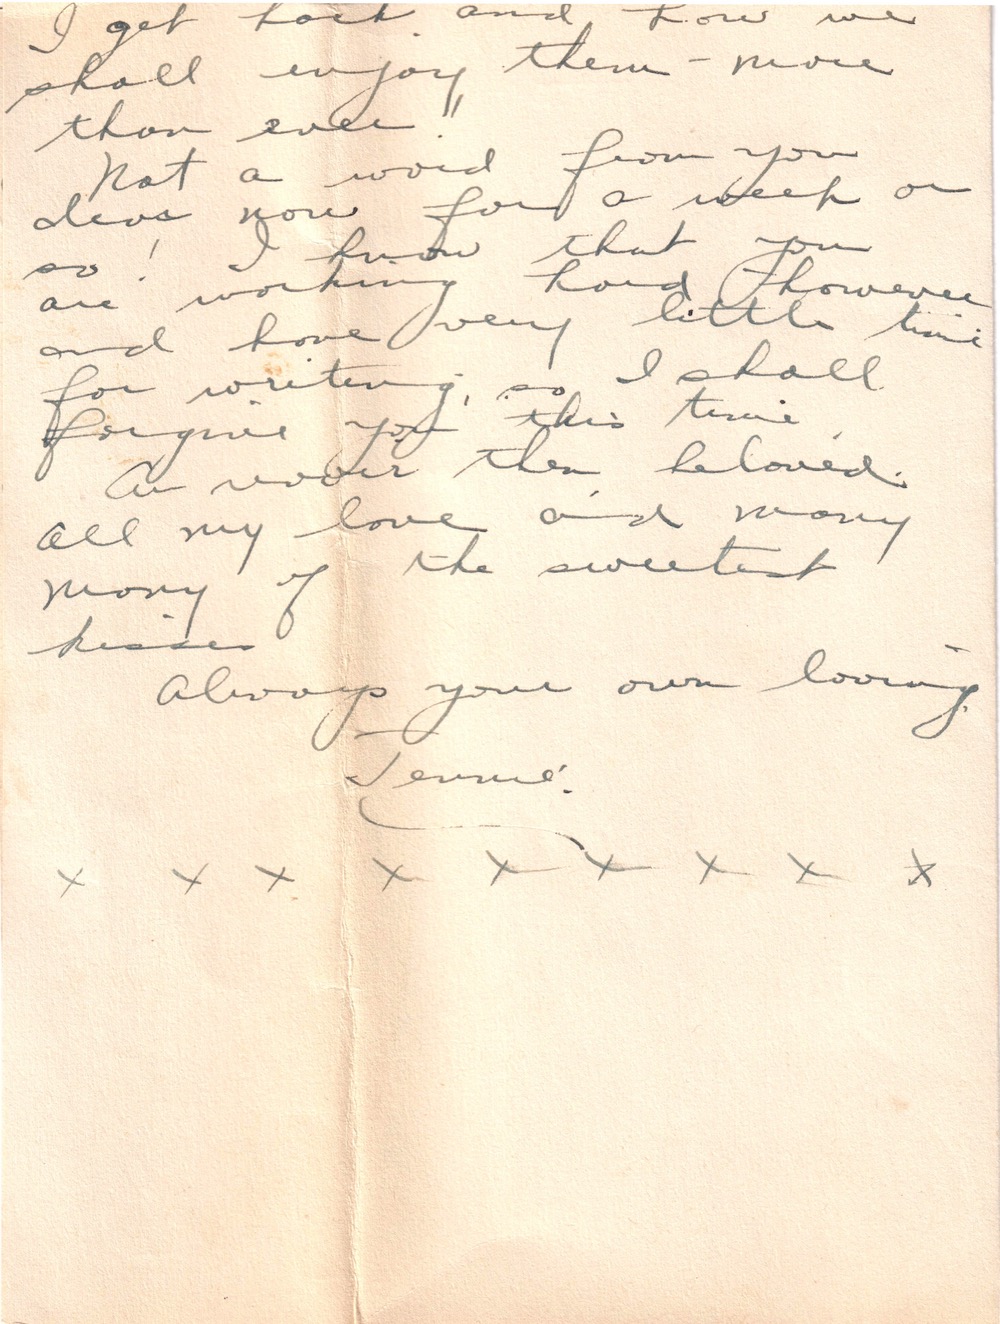 I get back and how we
shall enjoy them - more
than ever!!
Not a word from you
dear now for a week or
so! I know that you
are working hard however
and have very little time
for writing, so I shall
forgive you this time.
Au revoir then beloved.
All my love and many
many of the sweetest
kisses
Always your own loving
Jennie.
x x x x x x x x x